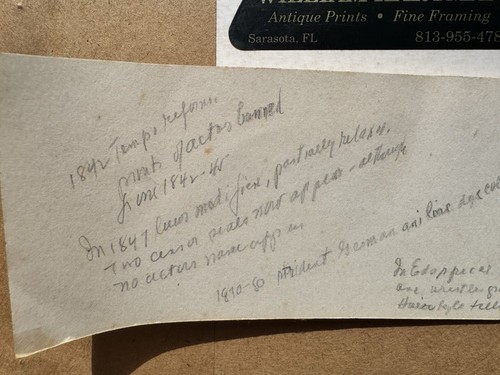 Antique Prints • Fine Framing
Sarasota, FL
813-955-478
1842 Tempo reforms.
prints of actors banned
from 1842-45
In 1847 laws modified, partially relaxed.
Two censor seals now appear - although
no actors name appears
1870-80 strident German aniline dye
In Edo period
are
Hair style tell